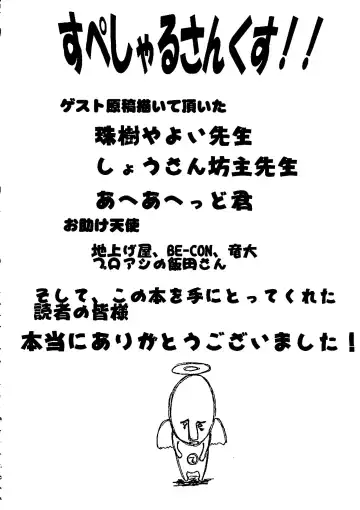 すぺしゃるさんくす！！
ゲスト原稿描いて頂いた
珠樹やよい先生
しょうさん坊主先生
あへあへっど君
お助け天使
地上げ屋、BE-CON、竜大
プロアシの飯田さん
そして、この本を手にとってくれた
読者の皆様
本当にありがとうございました！